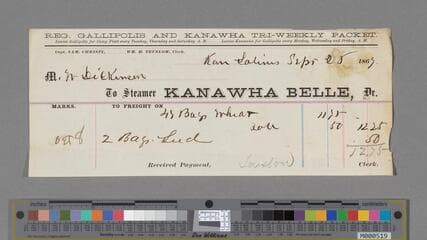 REG. GALLIPOLIS AND KANAWHA TRI-WEEKLY PACKET.
Leaves Gallipolis for Camp Piatt every Tuesday, Thursday and Saturday, A. M. Leaves Kanawha for Gallipolis every Monday, Wednesday and Friday, A. M.
Capt. SAM. CHRISTY, WM. H. TRUSLOW, Clerk.
Kan Salines Sept 25 1869
M. W Dickinson
To Steamer KANAWHA BELLE, Dr.
MARKS. TO FREIGHT ON
49 Bags Wheat 11 75
50 12 25
2 Bags Seed 50
12.75
Received Payment, Clerk.
centimeters
M000519